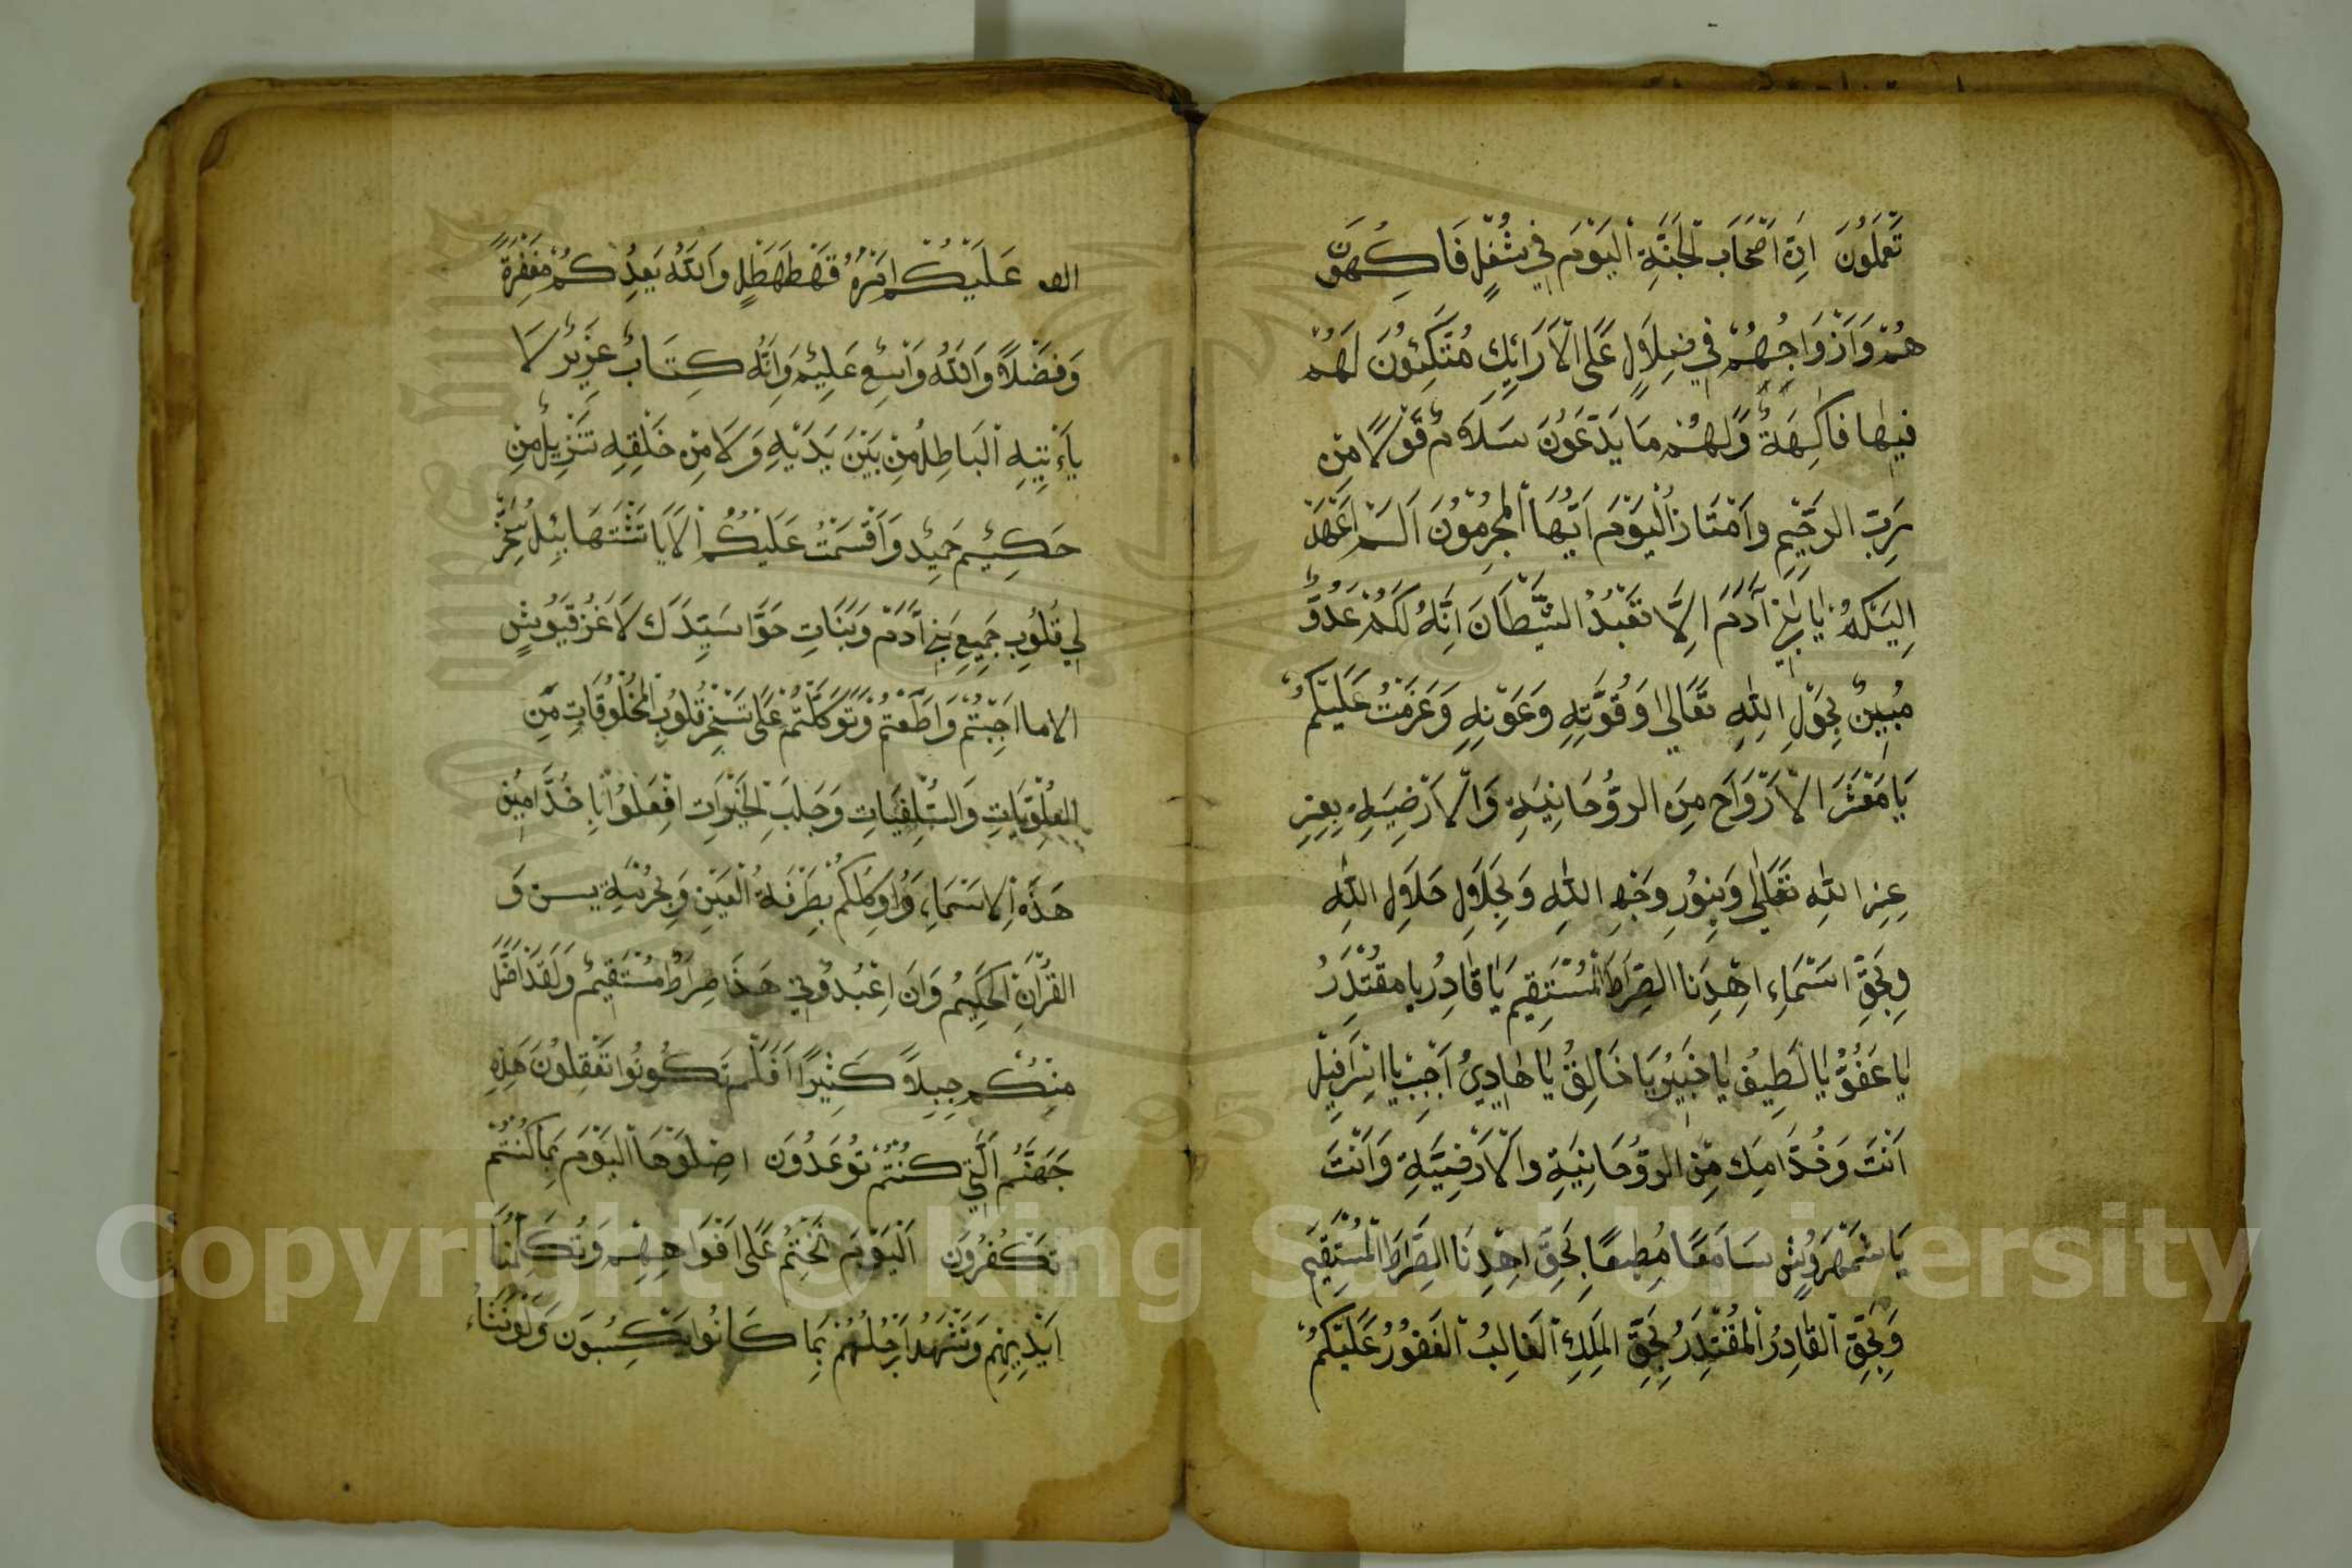 تَعْمَلُونَ اِنَّ اَصْحَابَ الْجَنَّةِ الْيَوْمَ فِي شُغُلٍ فَاكِهُونَ
هُمْ وَاَزْوَاجُهُمْ فِي ضِلَالٍ عَلَى الْاَرَائِكِ مُتَّكِئُونَ لَهُمْ
فِيهَا فَاكِهَةٌ وَلَهُمْ مَا يَدَّعُونَ سَلَامٌ قَوْلًا مِنْ
رَبِّ الرَّحِيمِ وَامْتَازُ الْيَوْمَ اَيُّهَا الْمُجْرِمُونَ اَلَمْ اَعْهَدْ
اِلَيْكُمْ يَا بَنِي آدَمَ اِلَّا تَعْبُدُ الشَّيْطَانَ اِنَّهُ لَكُمْ عَدُوٌّ
مُبِينٌ بِحَوْلِ اللهِ تَعَالَى وَقُوَّتِهِ وَعَوْنِهِ وَعَزَمْتُ عَلَيْكُمْ
يَا مَعْشَرَ الْاَرْوَاحِ مِنَ الرُّوحَانِيَةِ وَالْاَرْضِيَةِ بِعِزِ
عِزِ اللهِ تَعَالَى وَبِنُورِ وَجْهِ اللهِ وَبِجَلَالِ حَلَالِ اللهِ
وَبِحَقِّ اسْمَاءِ اِهْدِنَا الصِّرَاطَ الْمُسْتَقِيمَ يَا قَادِرُ يَا مُقْتَدِرُ
يَا عَفُوُّ يَا لَطِيفُ يَا خَبِيرُ يَا خَالِقُ يَا هَادِيُ اَجِبْ يَا اسْرَافِيلُ
اَنْتَ وَخُدَّامِكَ مِنَ الرُّوحَانِيَةِ وَالْاَرْضِيَّةِ وَاَنْتَ
يَا شَمْهَرُوشِ سَامَعًا مُطِيعًا بِحَقِّ اِهْدِنَا الصِّرَاطَ الْمُسْتَقِيمَ
وَبِحَقِّ الْقَادِرُ الْمُقْتَدِرُ بِحَقِّ الْمَلِكِ الْغَالِبُ الْغَفُورُ عَلَيْكُمْ
عَلَيْكُمْ وَاللهُ يَعِدُكُمْ مَغْفِرَةً
وَفَضْلًا وَاللهُ وَاسِعٌ عَلِيمٌ وَاِنَّهُ كِتَابٌ عَزِيزٌ لَا
يَأْتِيهِ الْبَاطِلُ مِنْ بَيْنَ يَدَيْهِ وَلَا مِنْ خَلْفِهِ تَنْزِيلُ مِنِ
حَكِيمٍ حَمِيدٍ وَاَقْسَمْتُ عَلَيْكُمْ
لِي قُلُوبِ جَمِيعِ بَنِي آدَمَ وَبَنَاتِ حَوَّا
الا ما اَجِبْتُمْ وَاَطَعْتُمْ وَتَوَكَّلْتُمْ عَلَى تَسْخِرْ قُلُوبِ الْمَخْلُوقَاتِ مِنِ
الْعُلْوِيَاتِ وَالسُّفْلِيَاتِ وَجَلْبَ الْخَيْرَاتِ اِفْعَلُوا يَا خُدَّامِينِ
هَذِهِ الْاَسْمَاءِ بِطَرْفَةُ الْعَيْنِ وَبِحُرْمَةِ يس وَ
الْقُرْآنِ الْحَكِيمِ وَاَنِ اعْبُدُونِي هَذَا صِرَاطٌ مُسْتَقِيمٌ وَلَقَدْ اَضَلَّ
مِنْكُمْ جِبِلًّا كَثِيرًا اَفَلَمْ تَكُونُوا تَعْقِلُونَ هَذِهِ
جَهَنَّمُ الَّتِي كُنْتُمْ تُوعَدُونَ اِصْلَوْهَا الْيَوْمَ بِمَا كُنْتُمْ
تَكْفُرُونَ اَلْيَوْمَ نَخْتِمُ عَلَى اَفْوَاهِهِمْ وَتُكَلِّمُنَا
اَيْدِيهِمْ وَتَشْهَدُ اَرْجُلُهُمْ بِمَا كَانُوا يَكْسِبُونَ وَلَوْ نَشَاءُ
Copyright © King Saud University
1957